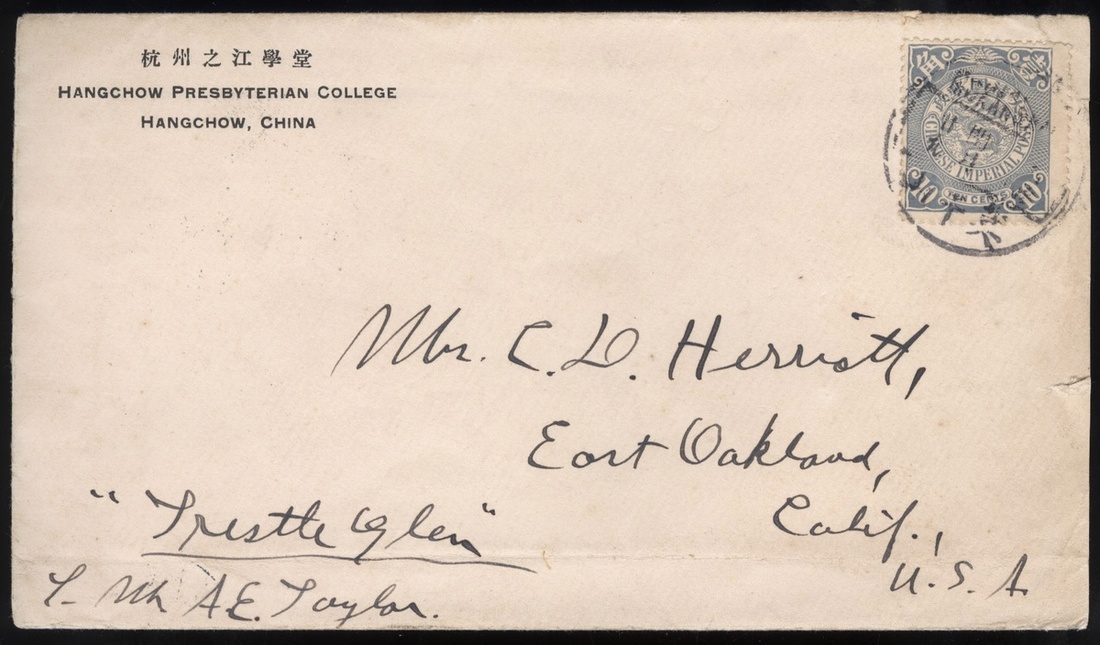 杭州之江學堂
HANGCHOW PRESBYTERIAN COLLEGE
HANGCHOW, CHINA
CHINESE IMPERIAL POST
10 TEN CENTS 10
Mr. C. D. Herriott,
East Oakland,
Calif.,
U. S. A.
"Trestle Glen"
A. E. Taylor.